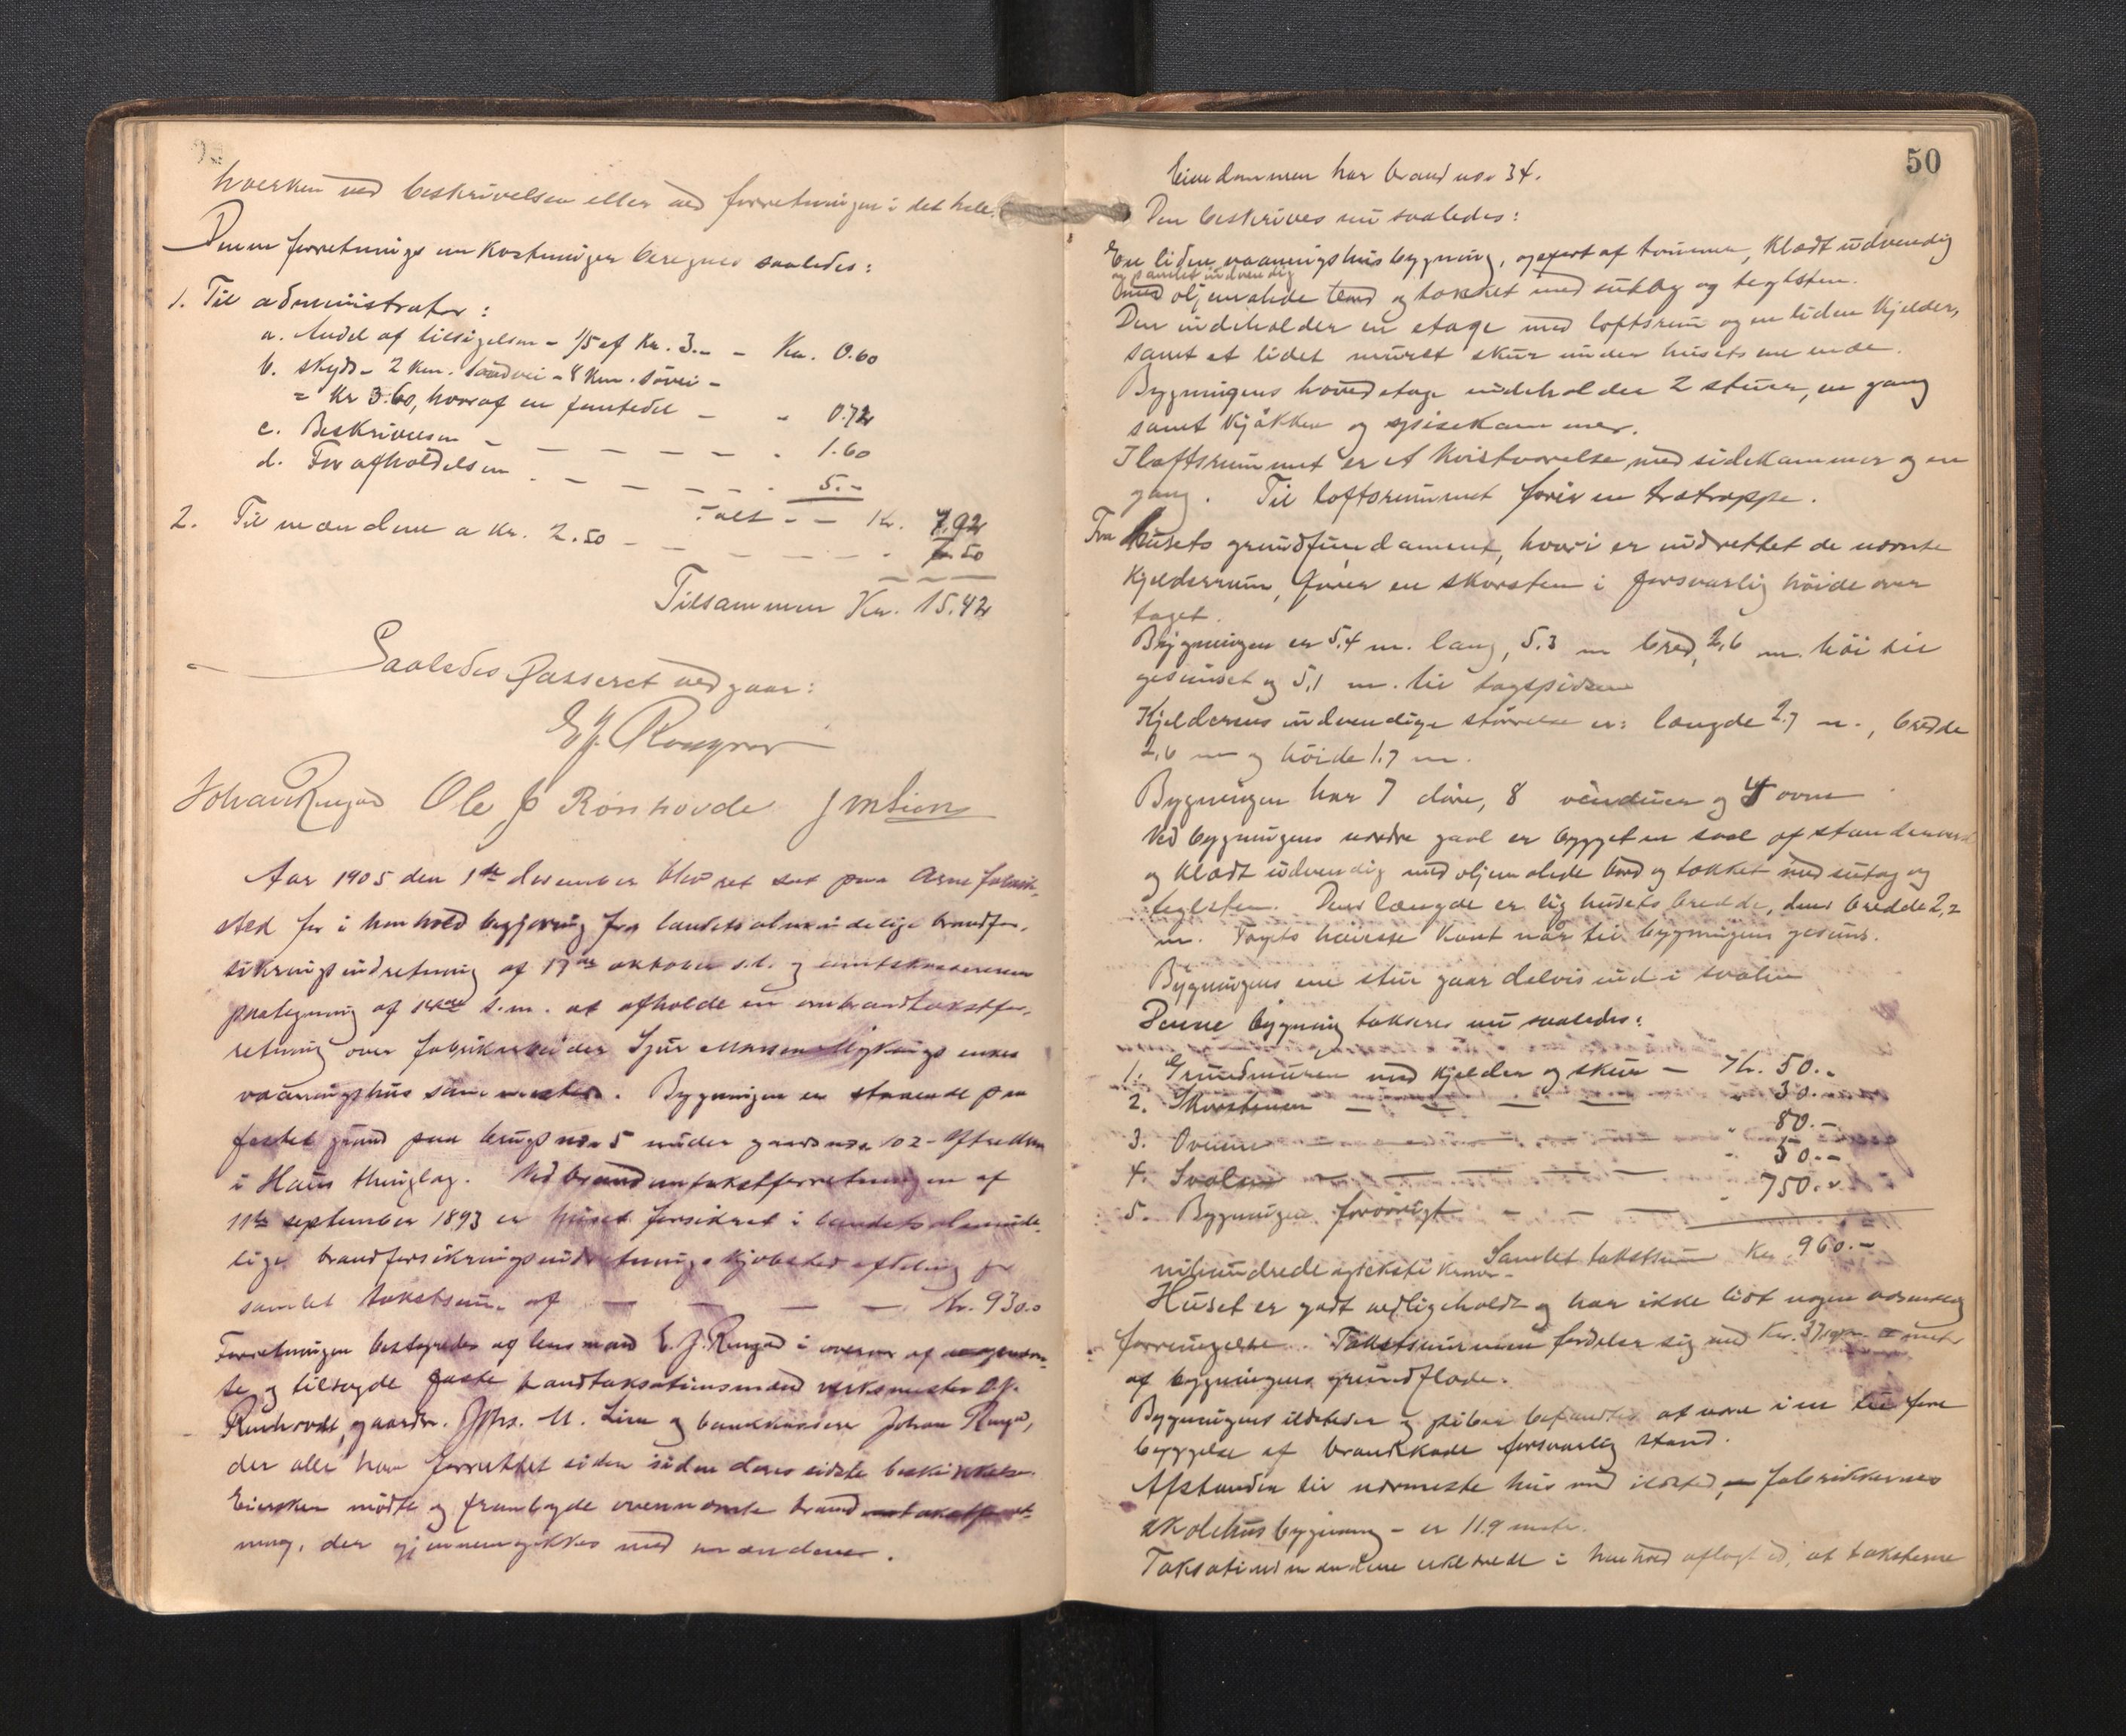 hverken ved beskrivelsen eller ved forretningen i det hele.
Denne forretnings omkostninger beregnes saaledes:
1. Til administrator:
a. Andel af tilsigelsen - 1/5 af Kr. 3.- - Kr. 0.60
b. Skyds - 2 km. landvei - 8 km. søvei -
= Kr 3.60, hvoraf en femtedel - - 0.72
c. Beskrivelsen - - - - - - 1.60
d. For afholdelsen - - - - - - 5.-
Ialt - - Kr. 7.92
2. Til mændene a Kr. 2.50 - - - - - - 7.50
Tilsammen Kr. 15.42
Saaledes passeret vedgaar:
E J. Ringdal
Johan Ringdal Ole J Rönhovde J M Lien
Aar 1905 den 1ste desember blev ret sat paa Arne fabrik-
sted for i henhold begjæring fra landets almindelige brandfor-
sikringsindretning af 17de oktober d.å. og amtskassererens
paategning af s.m. at afholde en ombrandtakstfor-
retning over fabrikarbeider Sjur Monsen Myking's enkes
vaaningshus sammesteds. Bygningen er staaende paa
fæstet grund paa brugs no. 5 under gaards no. 102 - Ytre Arne
i Haus thinglag. Ved brandomtakstforretningen af
11te september 1893 er huset forsikret i landets alminde-
lige brandforsikringsindretnings kjøbstedafdeling for
samlet takstsum af - - - - Kr. 930.-
Forretningen bestyredes af lensmand E. J. Ringdal i overvær af
te og tilsagde faste brandtaksationsmænd verksmester O. J.
Rønhovde, gaardbr. Johs. M. Lien og bankkasserer Johan Ringdal,
der alle har forrettet siden siden deres sidste beskikkelse.
Eiersken mødte og fremlagde ovennævnte brandomtakstforret-
ning, der gjennemgikkes med mændene.
50
Eiendommen har brand no. 34.
Den beskrives nu saaledes:
En liden vaaningshusbygning, opført af tømmer, klædt udvendig
og panelt indvendig
med oljemalede bord og tækket med sutag og teglsten.
Den indeholder en etage med loftsrum og en liden kjelder,
samt et lidet muret skur under husets ene ende.
Bygningens hovedetage indeholder 2 stuer, en gang
samt kjøkken og spisekammer.
I loftsrummet er et kvistværelse med sidekammer og en
gang. Til loftsrummet fører en trætrappe.
Fra husets grundfundament, hvori er indrettet de nævnte
kjelderrum, fører en skorsten i forsvarlig høide over
taget.
Bygningen er 5,4 m. lang, 5.3 m bred, 2,6 m. høi til
gesimset og 5,1 m. til tagspidsen
Kjelderens indvendige størrelse er: længde 2.7 m., bredde
2,6 m og høide 1.7 m.
Bygningen har 7 døre, 8 vinduer og 4 ovne
Ved bygningens nordre gavl er bygget en sval af standerverk
og klædt udvendig med oljemalede bord og tækket med sutag og
teglsten. Dens længde er lig husets bredde, dens bredde 2,2
m. Tagets høieste kant når til bygningens gesims.
Bygningens ene stue gaar delvis ind i svalen
Denne bygning takseres nu saaledes:
1. Grundmuren med kjelder og skur - Kr. 50.-
2. Skorstenen - - - - " 30.-
3. Ovnene - - - - - " 80.-
4. Svalen - - - - - " 50.-
5. Bygningen forøvrigt - - - " 750.-
Samlet takstsum Kr. 960.-
nihundrede og seksti kroner -
Huset er godt vedligeholdt og har ikke lidt nogen væsentlig
forringelse. Takstsummen fordeler sig med Kr. pr. □ meter
af bygningens grundflade.
Bygningens ildsteder og piber befandtes at være i en til fore
byggelse af brandskade forsvarlig stand.
Afstanden til nærmeste hus med ildsted, - fabrikkernes
skolehusbygning - er 11.9 meter.
Taksationsmændene erklærede i henhold aflagt ed, at taksterne